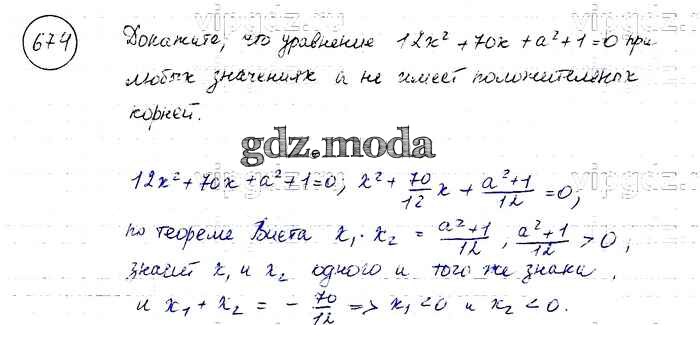 674
Докажите, что уравнение 12x² + 70x + a² + 1 = 0 при
любых значениях a не имеет положительных
корней.
gdz.moda
12x² + 70x + a² + 1 = 0, x² + 70/12 x + (a² + 1)/12 = 0,
по теореме Виета x₁ · x₂ = (a² + 1)/12, (a² + 1)/12 > 0,
значит x₁ и x₂ одного и того же знака,
и x₁ + x₂ = − 70/12 => x₁ < 0 и x₂ < 0.